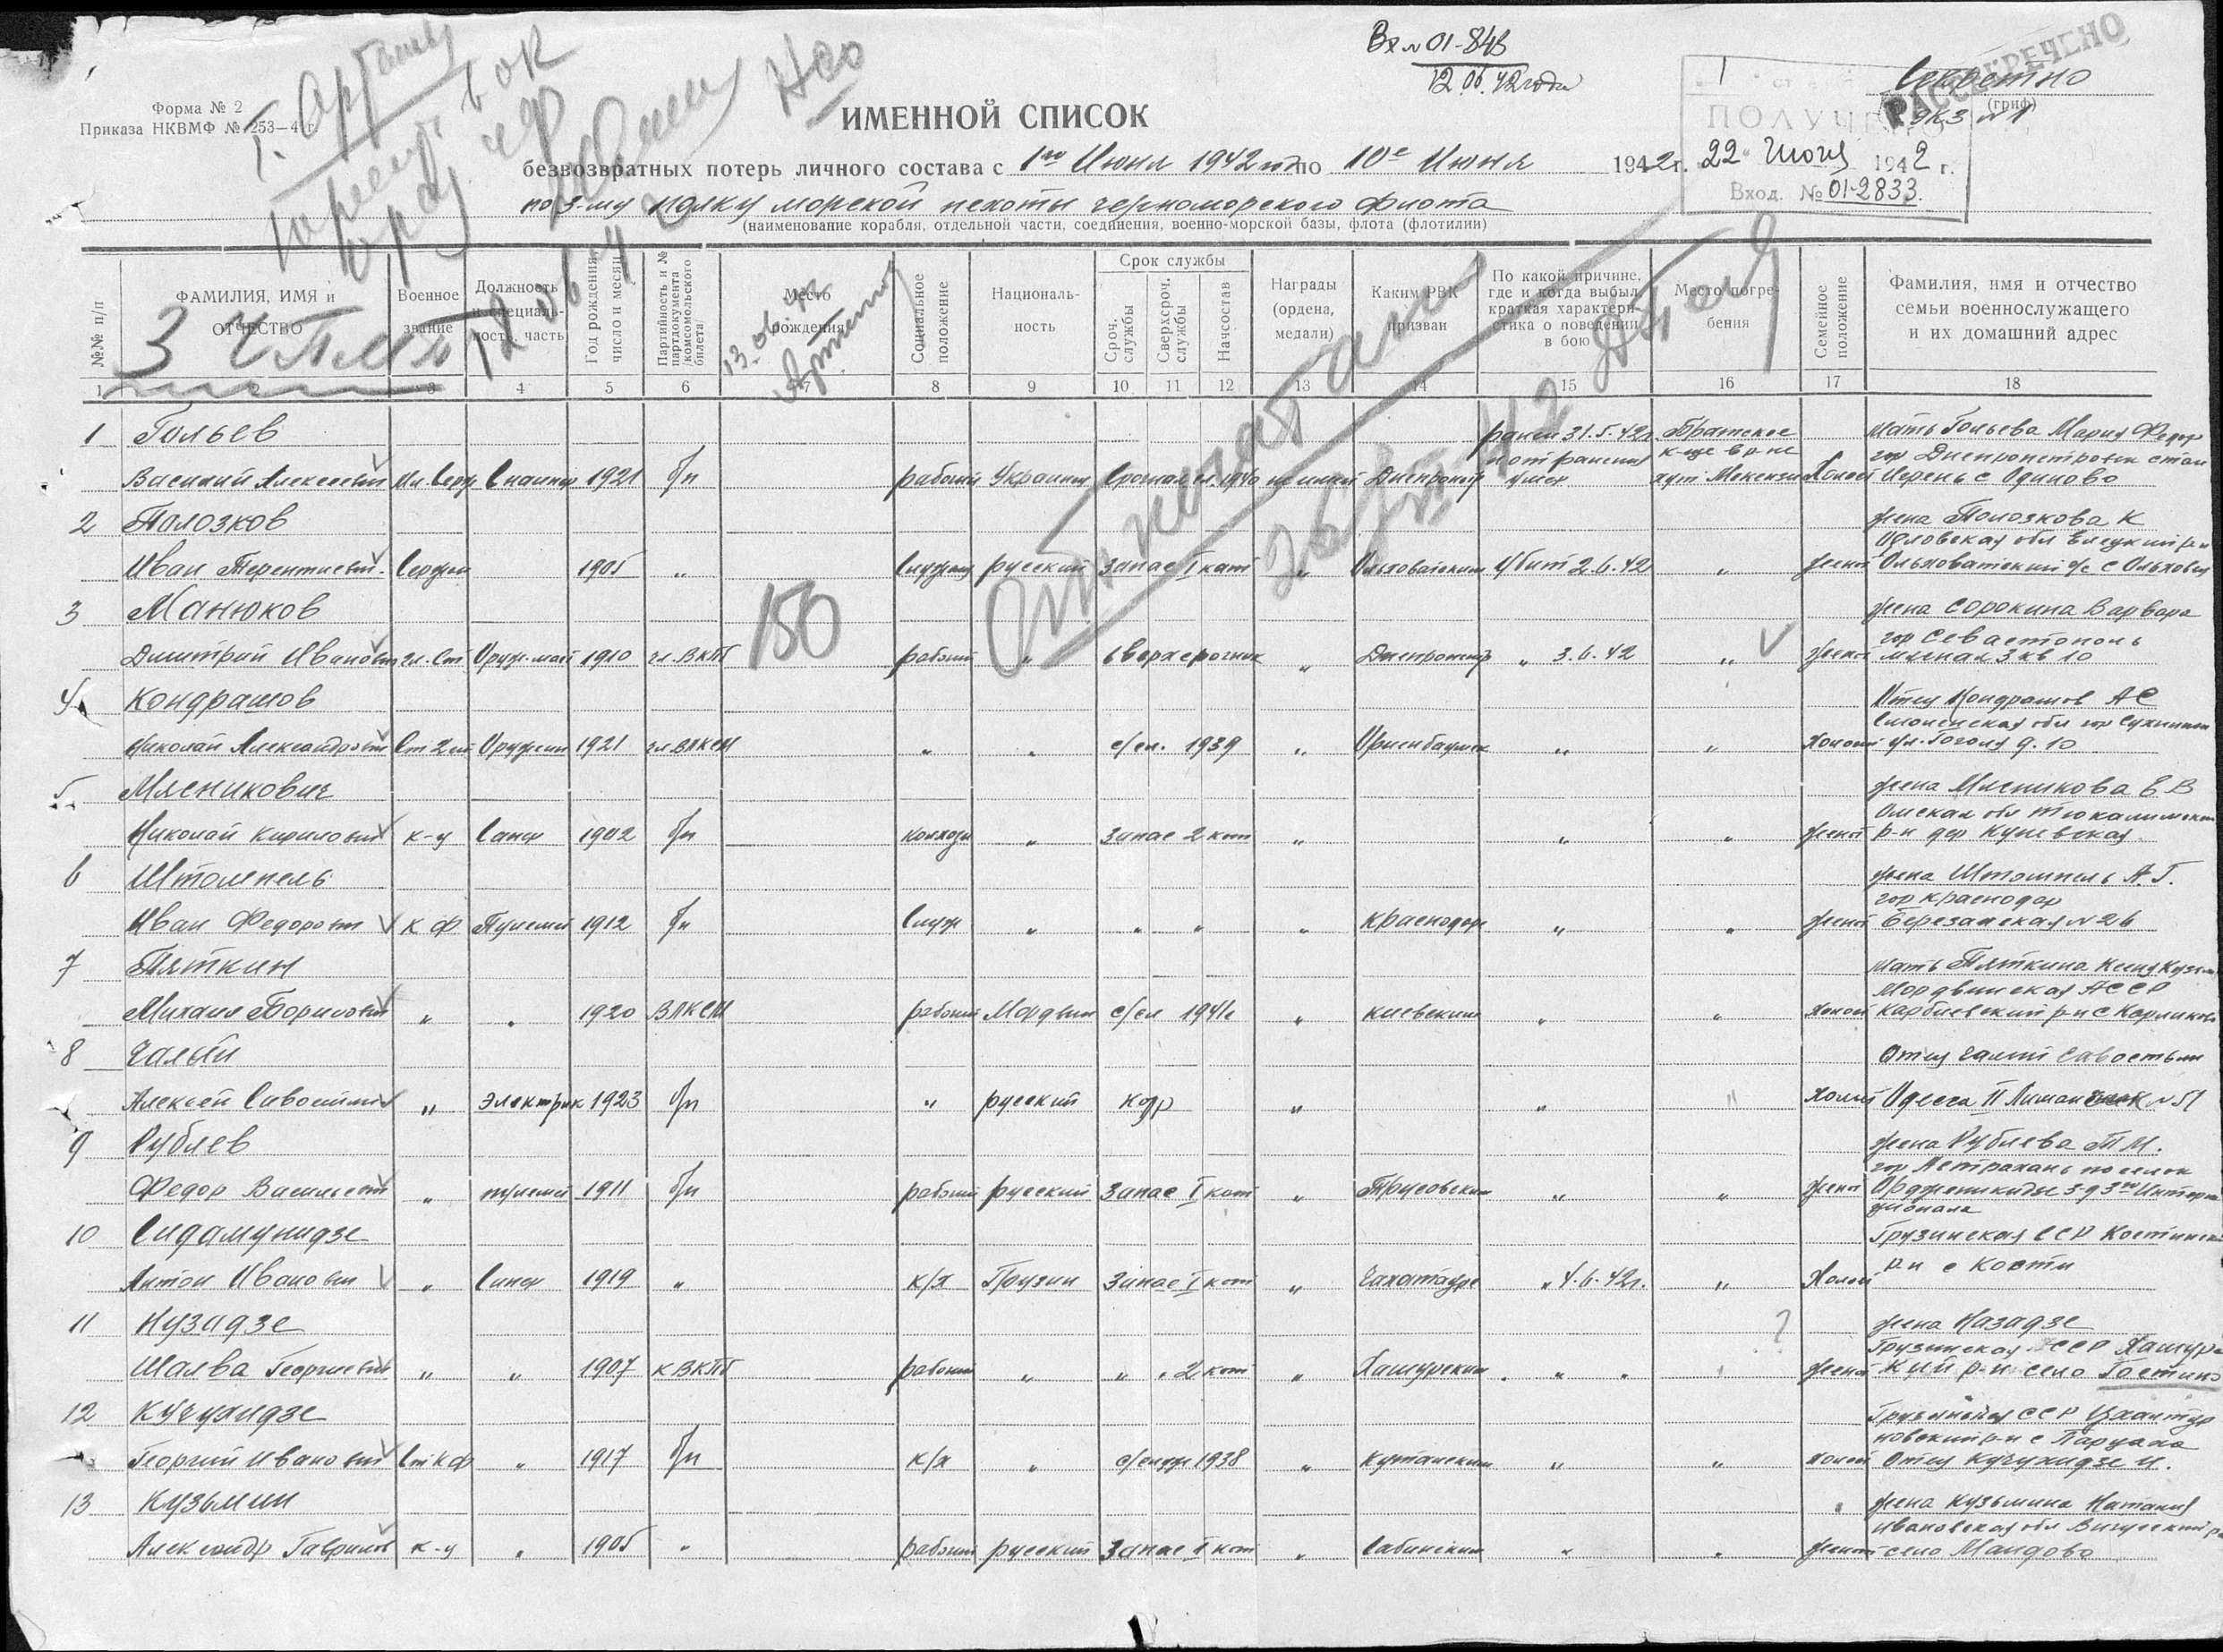 Вх № 01-843
12 06. 42 года
Секретно
(гриф)
РАССЕКРЕЧЕНО
экз № 1
Форма № 2
Приказа НКВМФ № 253—41 г.
ИМЕННОЙ СПИСОК
ПОЛУЧЕНО
22 Июня 1942 г.
Вход. № 01-2833.
безвозвратных потерь личного состава с 1го Июня 1942 по 10е Июня 1942 г.
по 3-му полку морской пехоты черноморского флота
(наименование корабля, отдельной части, соединения, военно-морской базы, флота (флотилии)
№№ п/п ФАМИЛИЯ, ИМЯ и ОТЧЕСТВО Военное звание Должность и специальность, часть Год рождения число и месяц Партийность и № партдокумента /комсомольского билета/ Место рождения Социальное положение Националь-ность Срок службы Сроч. службы Сверхсроч. службы Начсостав Награды (ордена, медали) Каким РВК призван По какой причине, где и когда выбыл, краткая характери-стика о поведении в бою Место погре-бения Семейное положение Фамилия, имя и отчество семьи военнослужащего и их домашний адрес
13.06.42
1 2 3 4 5 6 7 8 9 10 11 12 13 14 15 16 17 18
1 Гольев ранен 31.5.42г. Братское мать Гольева Мария Федор
и от ранения к-ще в р-не
Василий Алексеевич Мл. Серж Снайпер 1921 б/п рабочий Украинец Срочная сл. 1940 не имеет Днепропетр умер хут Мекензи Холост
2 Полозков жена Полозкова К
Орловская обл Елецкий р-н
Иван Терентиевич Сержан 1905 " Служащ русский запас I кат " Ольховатским Убит 2.6.42 " женат Ольховатский с/с с Ольховец
3 Манюков жена Сорокина Варвара
гор Севастополь
Дмитрий Иванович гл. Ст Оруж. май 1910 чл. ВКПб 150 рабочий " сверхсрочник " Днепропетр " 3.6.42 " женат 3 кв 10
4 Кондрашов Отец Кондрашов АС
Смоленская обл гор Сухиничи
Николай Александрович Ст 2 ст Оружейн 1921 чл. ВЛКСМ " " с/сл. 1939 " " " Холост ул. Гоголя д. 10
5 Мясникович жена Мясникова Е В
Омская обл Тюкалинский
Николай Кирилович к-ц Сапер 1902 б/п колхозн " запас 2 кат " " " женат р-н дер
6 Штомпель жена Штомпель А. Г.
гор Краснодар
Иван Федорович к ф Пулемет 1912 б/п Служ " " " " Краснодар " " женат Березанская № 26
7 Пяткин мать Пяткина
Мордвинская АССР
Михаил Борисович " " 1920 ВЛКСМ рабочий Мордвин с/сл 1941г " киевским " " холост
8 Чалый Отец Чалый Савостьян
Алексей " электрик 1923 б/п " русский кадр " " " Холост Одесса II № 51
9 Рублев жена Рублева Т М.
гор Астрахань поселок
Федор Васильевич " пулемет 1911 б/п рабочий русский Запас I кат " Трусовским " " женат Орджоникидзе 3го Интерна
ционала
10 Сидамунидзе Грузинская ССР
р-н с Кости
Антон Иванович " Сапер 1919 " к/х Грузин Запас I кат " Чахатауре " 4.6.42г. " Холост
11 Нузадзе жена Казадзе
Грузинская ССР Хашурс
Шалва Георгиевич " " 1907 к ВКПб рабочий " " " 2 кат " Хашурским " " " женат кий р-н село
12 Кучухидзе Грузинская ССР
Георгий Иванович Ст к ф " 1917 б/п к/х " 1938 " Кутаиским " " холост отец Кучухидзе И.
13 Кузьмин жена Кузьмина Наталия
Ивановская обл Вичугский р
Александр Гаврилов к-ц " 1905 " рабочий русский Запас I кат " Сабинским " " женат село